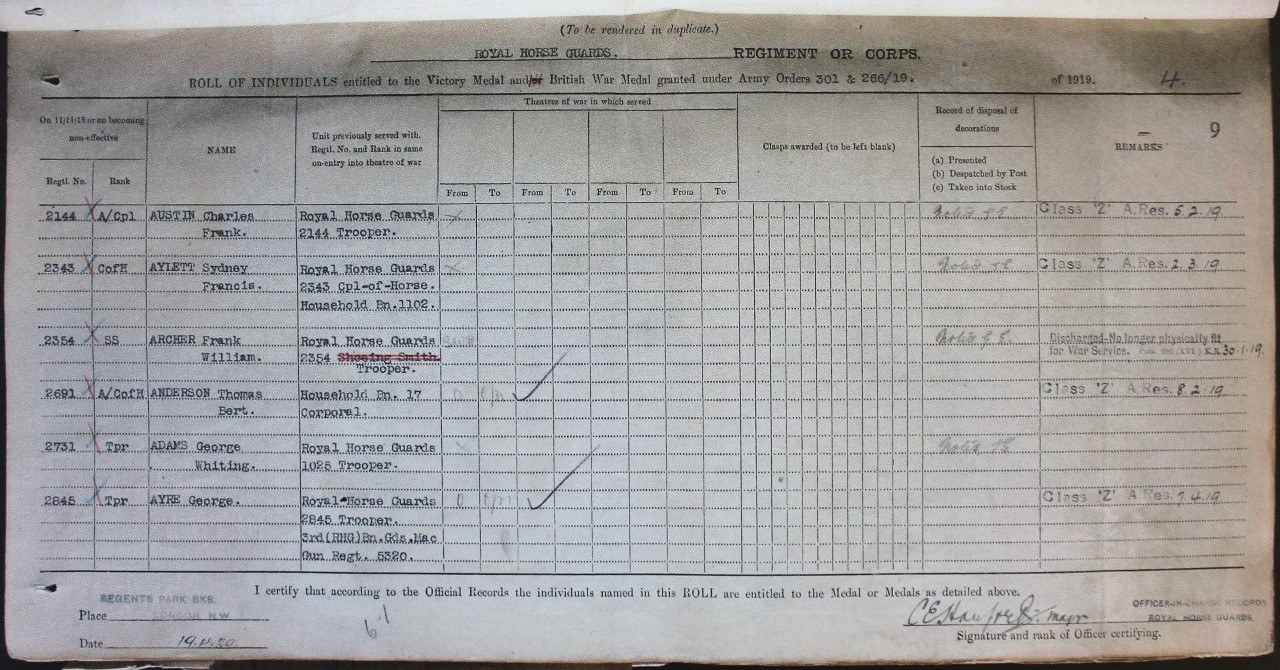 (To be rendered in duplicate.)
ROYAL HORSE GUARDS. REGIMENT OR CORPS.
ROLL OF INDIVIDUALS entitled to the Victory Medal and/or British War Medal granted under Army Orders 301 & 266/19. of 1919. 4.
On 11/11/18 or on becoming non-effective
Regtl. No. Rank
NAME
Unit previously served with. Regtl. No. and Rank in same on entry into theatre of war
Theatres of war in which served
From To From To From To From To
Clasps awarded (to be left blank)
Record of disposal of decorations
(a) Presented
(b) Despatched by Post
(c) Taken into Stock
REMARKS
9
2144 X A/Cpl AUSTIN Charles Royal Horse Guards Class 'Z' A.Res. 5.2.19
Frank. 2144 Trooper.
2343 X CofH AYLETT Sydney Royal Horse Guards Class 'Z' A.Res. 2.3.19
Francis. 2343 Cpl-of-Horse.
Household Bn.1102.
2354 X SS ARCHER Frank Royal Horse Guards Discharged-No longer physically fit
William. 2354 Shoeing Smith. for War Service. K.R. 30-1-19.
Trooper.
2691 X A/CofH ANDERSON Thomas Household Bn. 17 Class 'Z' A.Res. 8.2.19
Bert. Corporal.
2731 X Tpr ADAMS George Royal Horse Guards
Whiting. 1025 Trooper.
2845 X Tpr AYRE George. Royal Horse Guards Class 'Z' A.Res. 7.4.19
2845 Trooper.
3rd(RHG)Bn.Gds.Mac
Gun Regt. 5320.
I certify that according to the Official Records the individuals named in this ROLL are entitled to the Medal or Medals as detailed above.
Place REGENTS PARK BKS.
LONDON N.W
Date
major
OFFICER-IN-CHARGE RECORDS
ROYAL HORSE GUARDS
Signature and rank of Officer certifying.